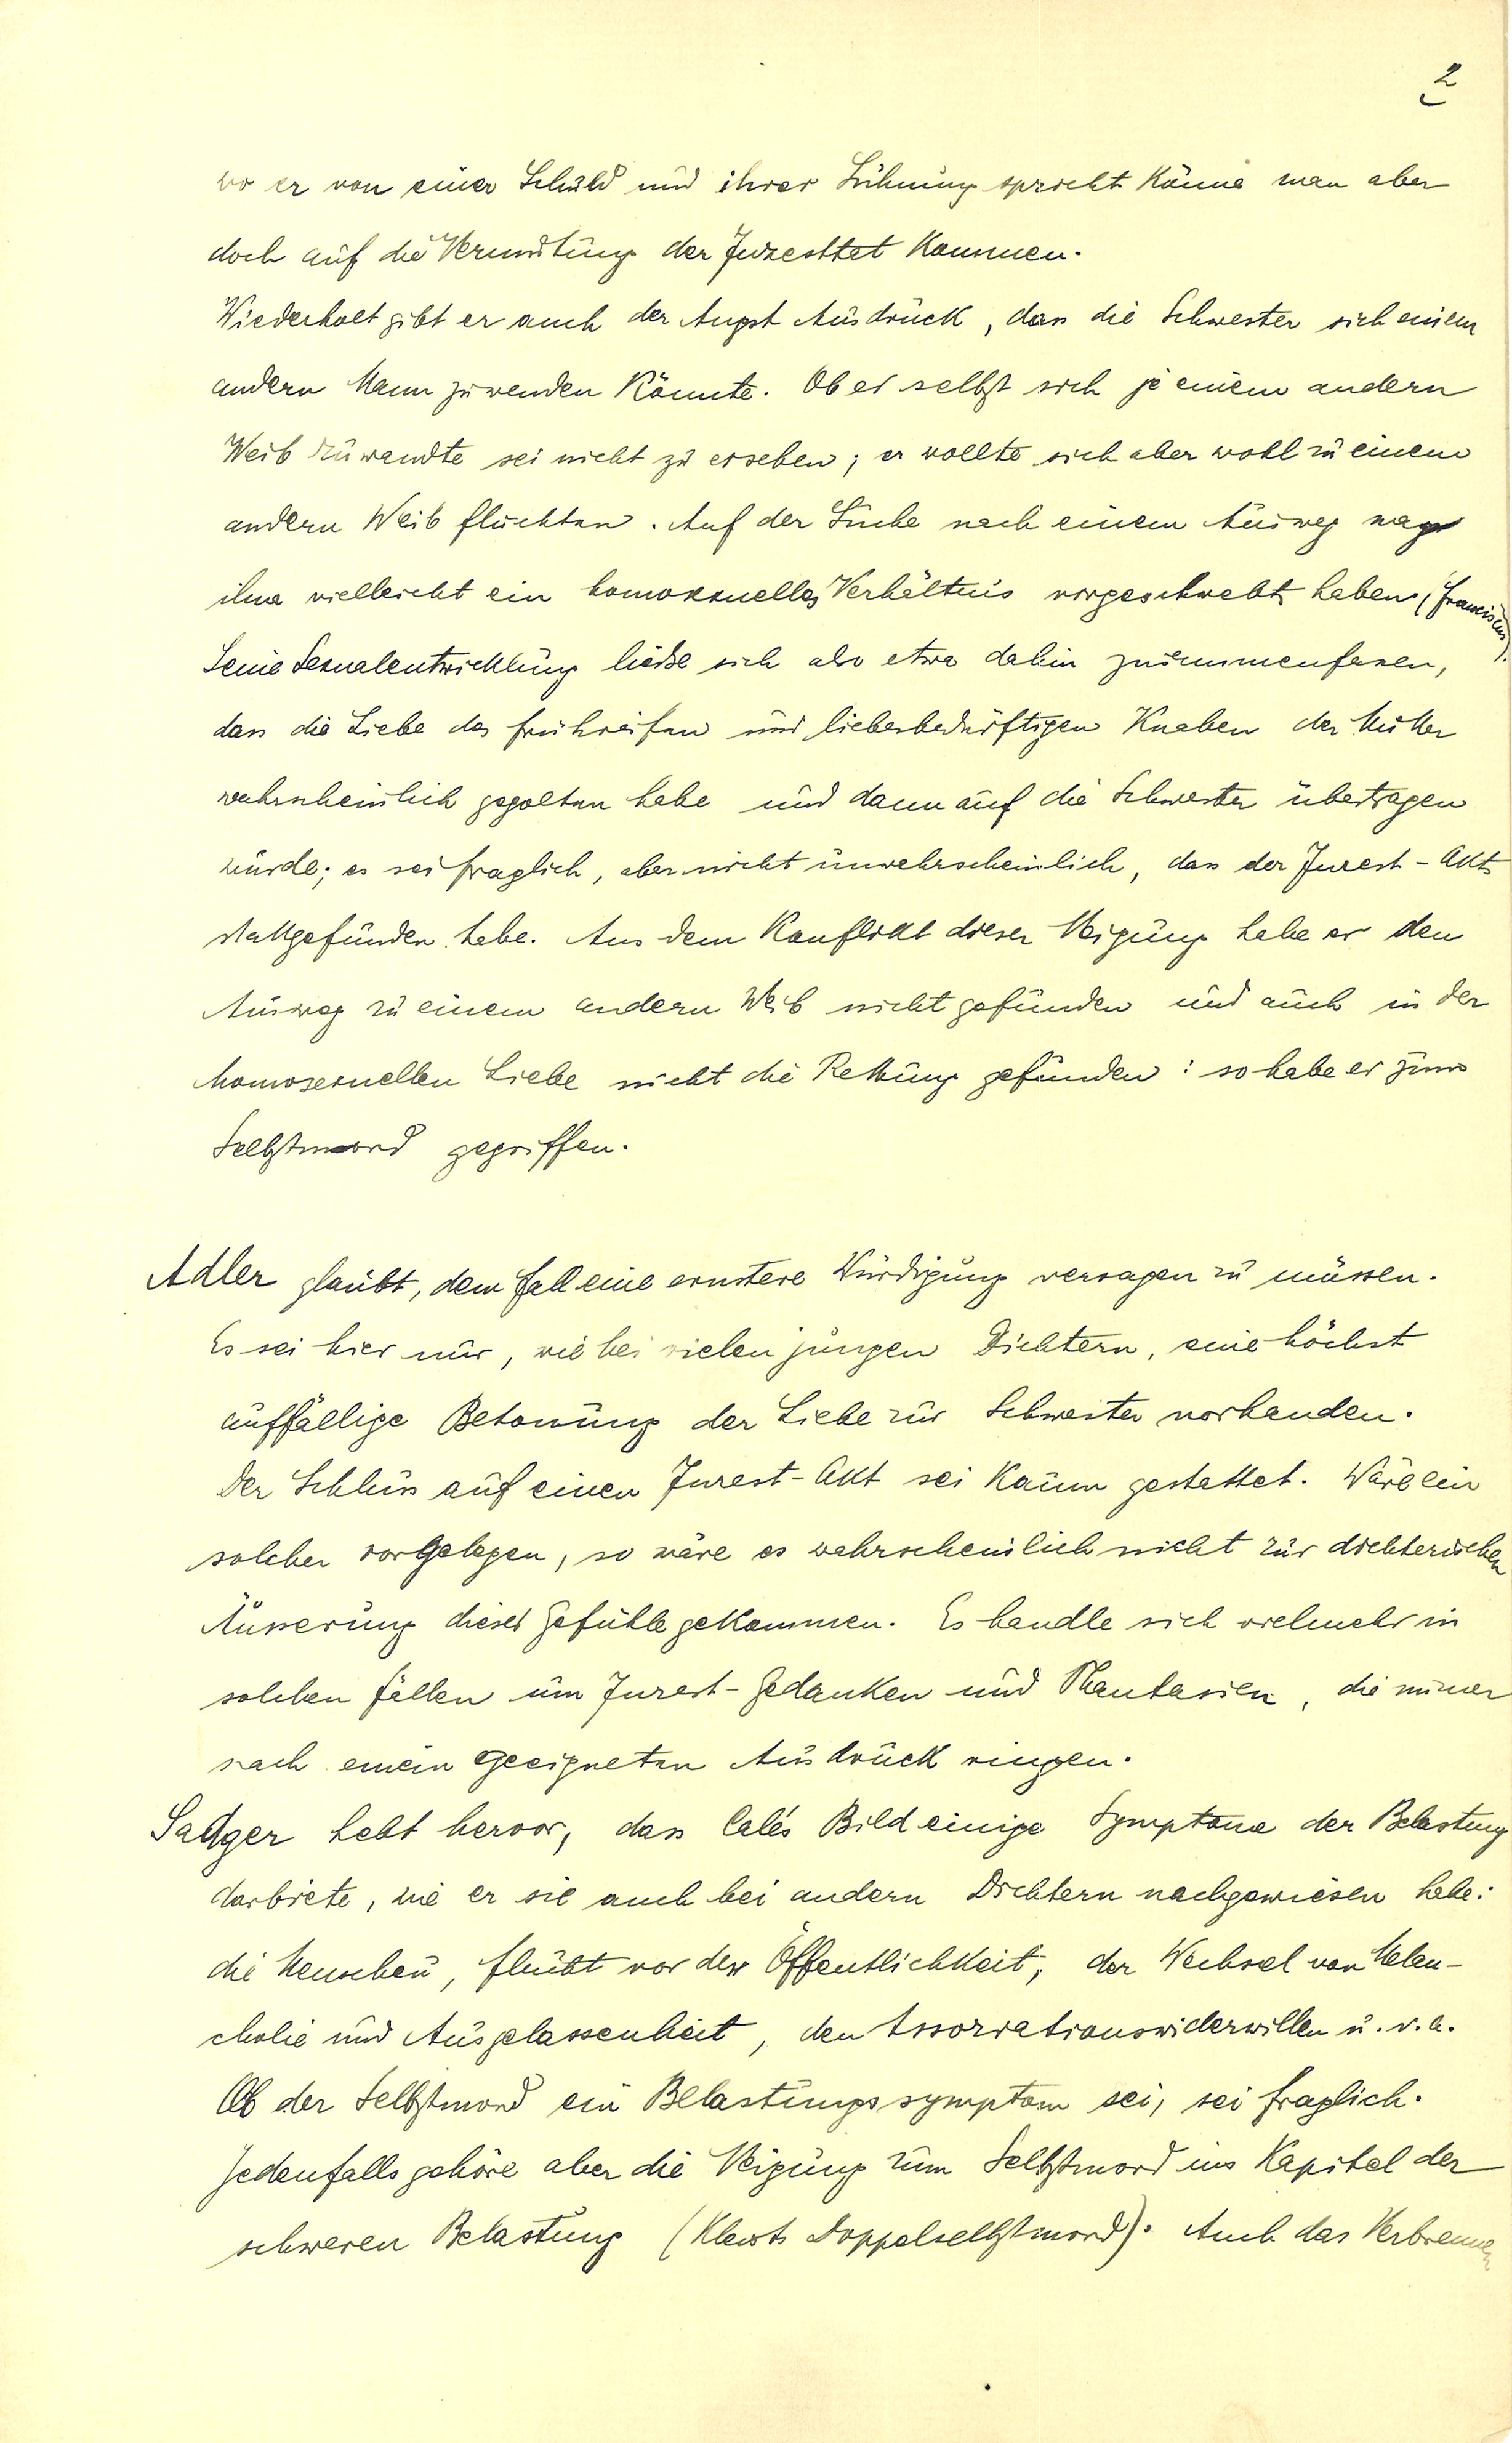 2
wo er von einer Schuld und ihrer Sühnung spricht könne man aber
doch auf die Vermutung der Inzesttat kommen.
Wiederholt gibt er auch der Angst Ausdruck, dass die Schwester sich einem
andern Mann zuwenden könnte. Ob er selbst sich je einem andern
Weib zuwandte sei nicht zu ersehen; er wollte sich aber wohl zu einem
andern Weib flüchten. Auf der Suche nach einem Ausweg mag
ihm vielleicht ein homosexuelles Verhältnis vorgeschwebt haben (Franciscus).
Seine Sexualentwicklung liesse sich also etwa dahin zusammenfassen,
dass die Liebe des frühreifen und liebesbedürftigen Knaben der Mutter
wahrscheinlich gegolten habe und dann auf die Schwester übertragen
wurde; es sei fraglich, aber nicht unwahrscheinlich, dass der Inzest-Akt
stattgefunden habe. Aus dem Konflikt dieser Neigung habe er den
Ausweg zu einem andern Weib nicht gefunden und auch in der
homosexuellen Liebe nicht die Rettung gefunden: so habe er zum
Selbstmord gegriffen.
Adler glaubt, dem Fall eine ernstere Würdigung versagen zu müssen.
Es sei hier nur, wie bei vielen jungen Dichtern, eine höchst
auffällige Betonung der Liebe zur Schwester vorhanden.
Der Schluss auf einen Inzest-Akt sei kaum gestattet. Wäre ein
solcher vorgelegen, so wäre es wahrscheinlich nicht zur dichterischen
Äusserung dieser Gefühle gekommen. Es handle sich vielmehr in
solchen Fällen um Inzest-Gedanken und Phantasien, die immer
nach einem geeigneten Ausdruck ringen.
Sadger hebt hervor, dass Calés Bild einige Symptome der Belastung
darbiete, wie er sie auch bei andern Dichtern nachgewiesen habe:
die Menscheu, Flucht vor der Öffentlichkeit, der Wechsel von Melan-
cholie und Ausgelassenheit, den Assoziationswiderwillen u.v.a.
Ob der Selbstmord ein Belastungssymptom sei, sei fraglich.
Jedenfalls gehöre aber die Neigung zum Selbstmord ins Kapitel der
schweren Belastung (Kleists Doppelselbstmord). Auch das Verbrennen